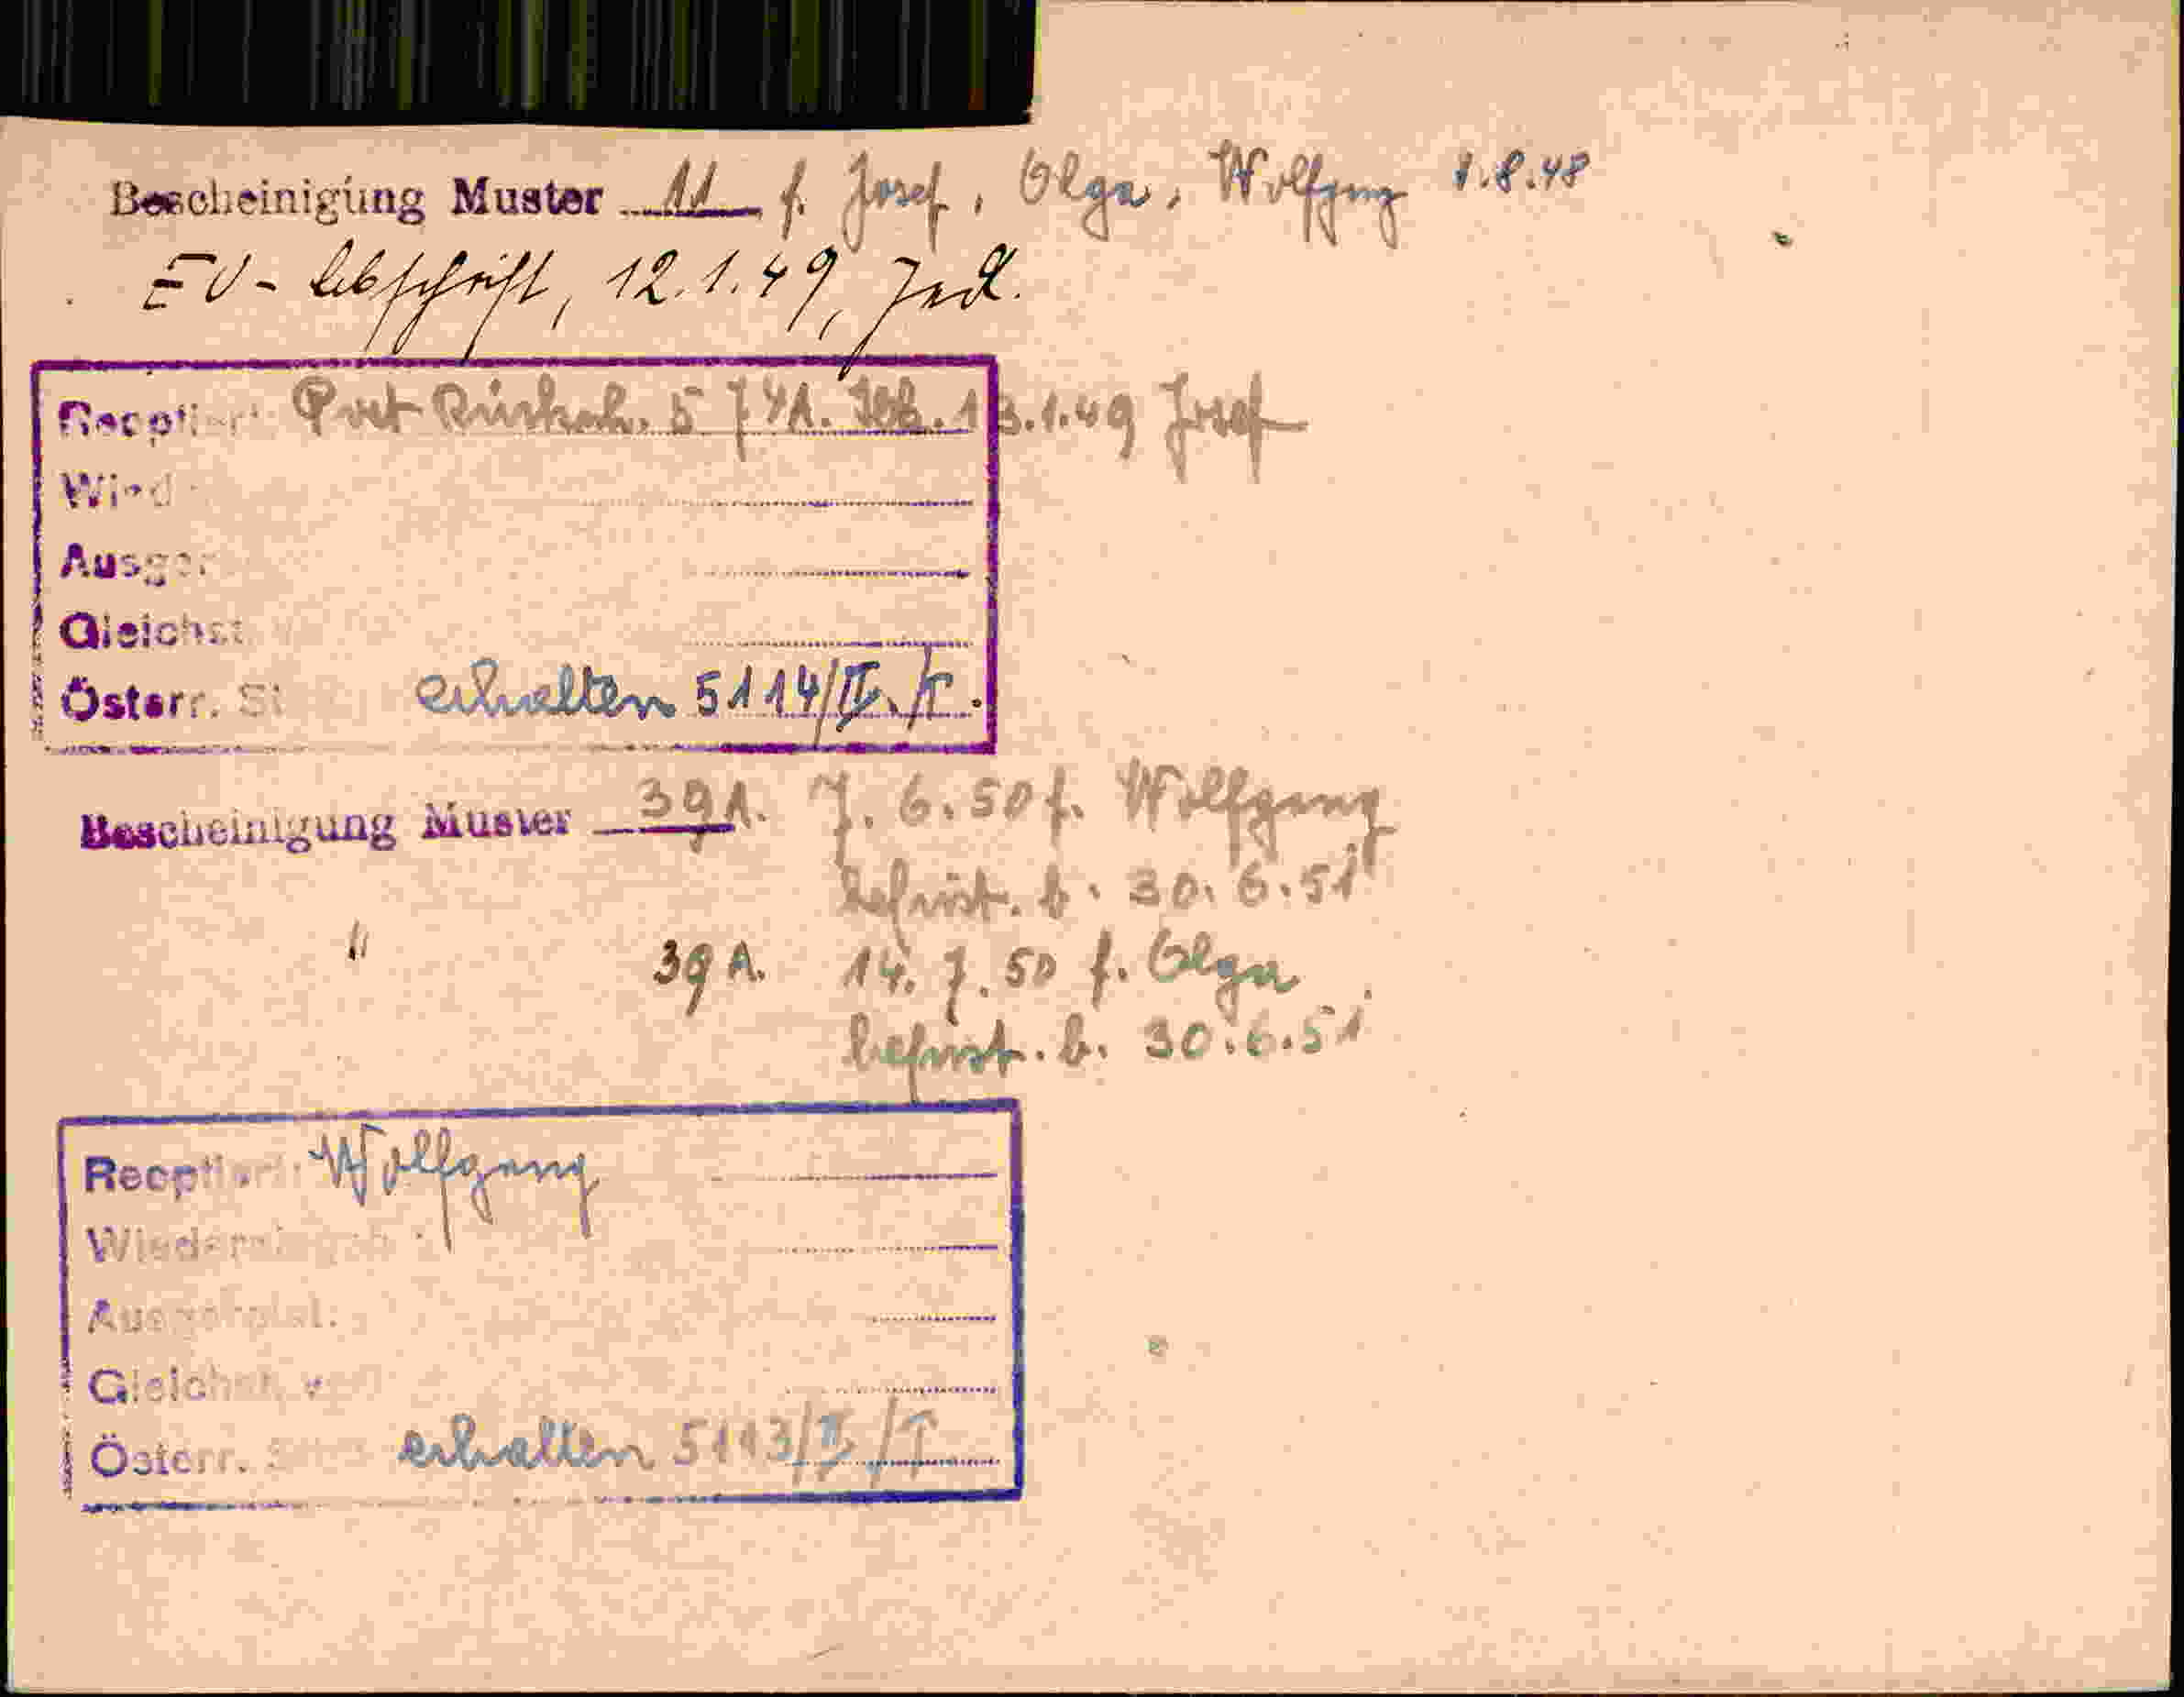 Bescheinigung Muster 11 f. Josef, Olga, Wolfgang 1.8.48
EV- Abschrift, 12.1.49,
Receptiert: 13.1.49 Josef
Wied
Ausge
Gleichst
Österr. St erhalten 5114/II.
Bescheinigung Muster 39A. 7.6.50 f. Wolfgang
befrist. b. 30.6.51
" 39A. 14.7.50 f. Olga
befrist. b. 30.6.51
Receptiert: Wolfgang
Wiedereingeb.
Ausgefolgt:
Gleichst. v
Österr. erhalten 5113/II